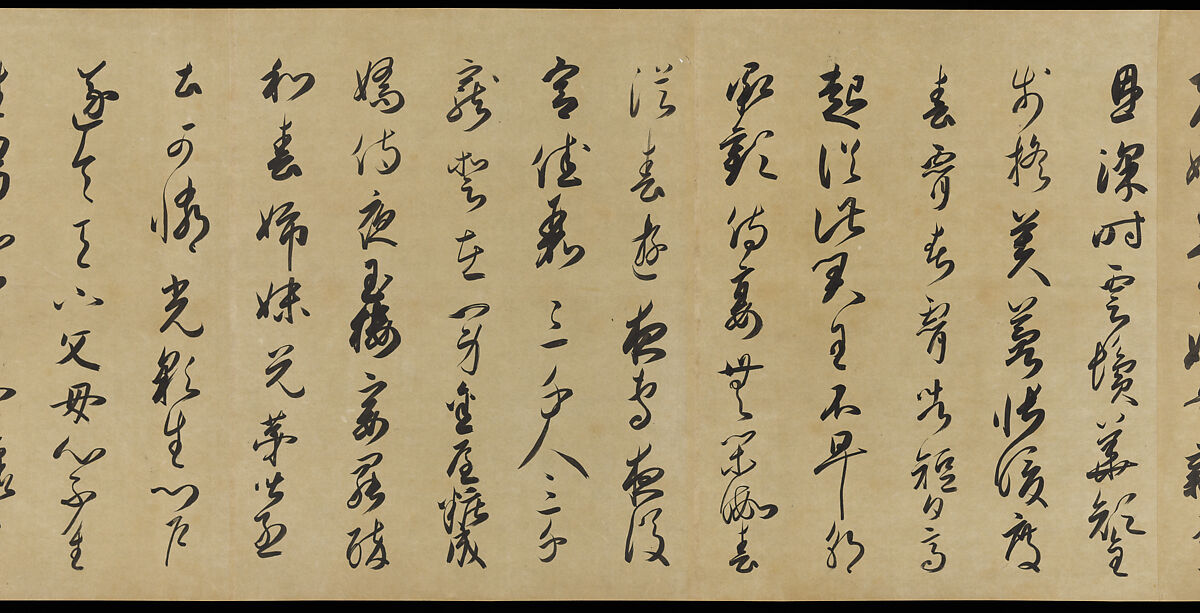 恩深時雲鬢華顏金
步搖芙蓉帳暖度
春宵春宵苦短日高
起從此君王不早朝
承歡侍宴無閑暇春
從春遊夜專夜後
宮佳麗三千人三千
寵愛在一身金屋粧成
嬌侍夜玉樓宴罷醉
和春姊妹兄弟皆列
土可憐光彩生門戶
遂令天下父母心不重